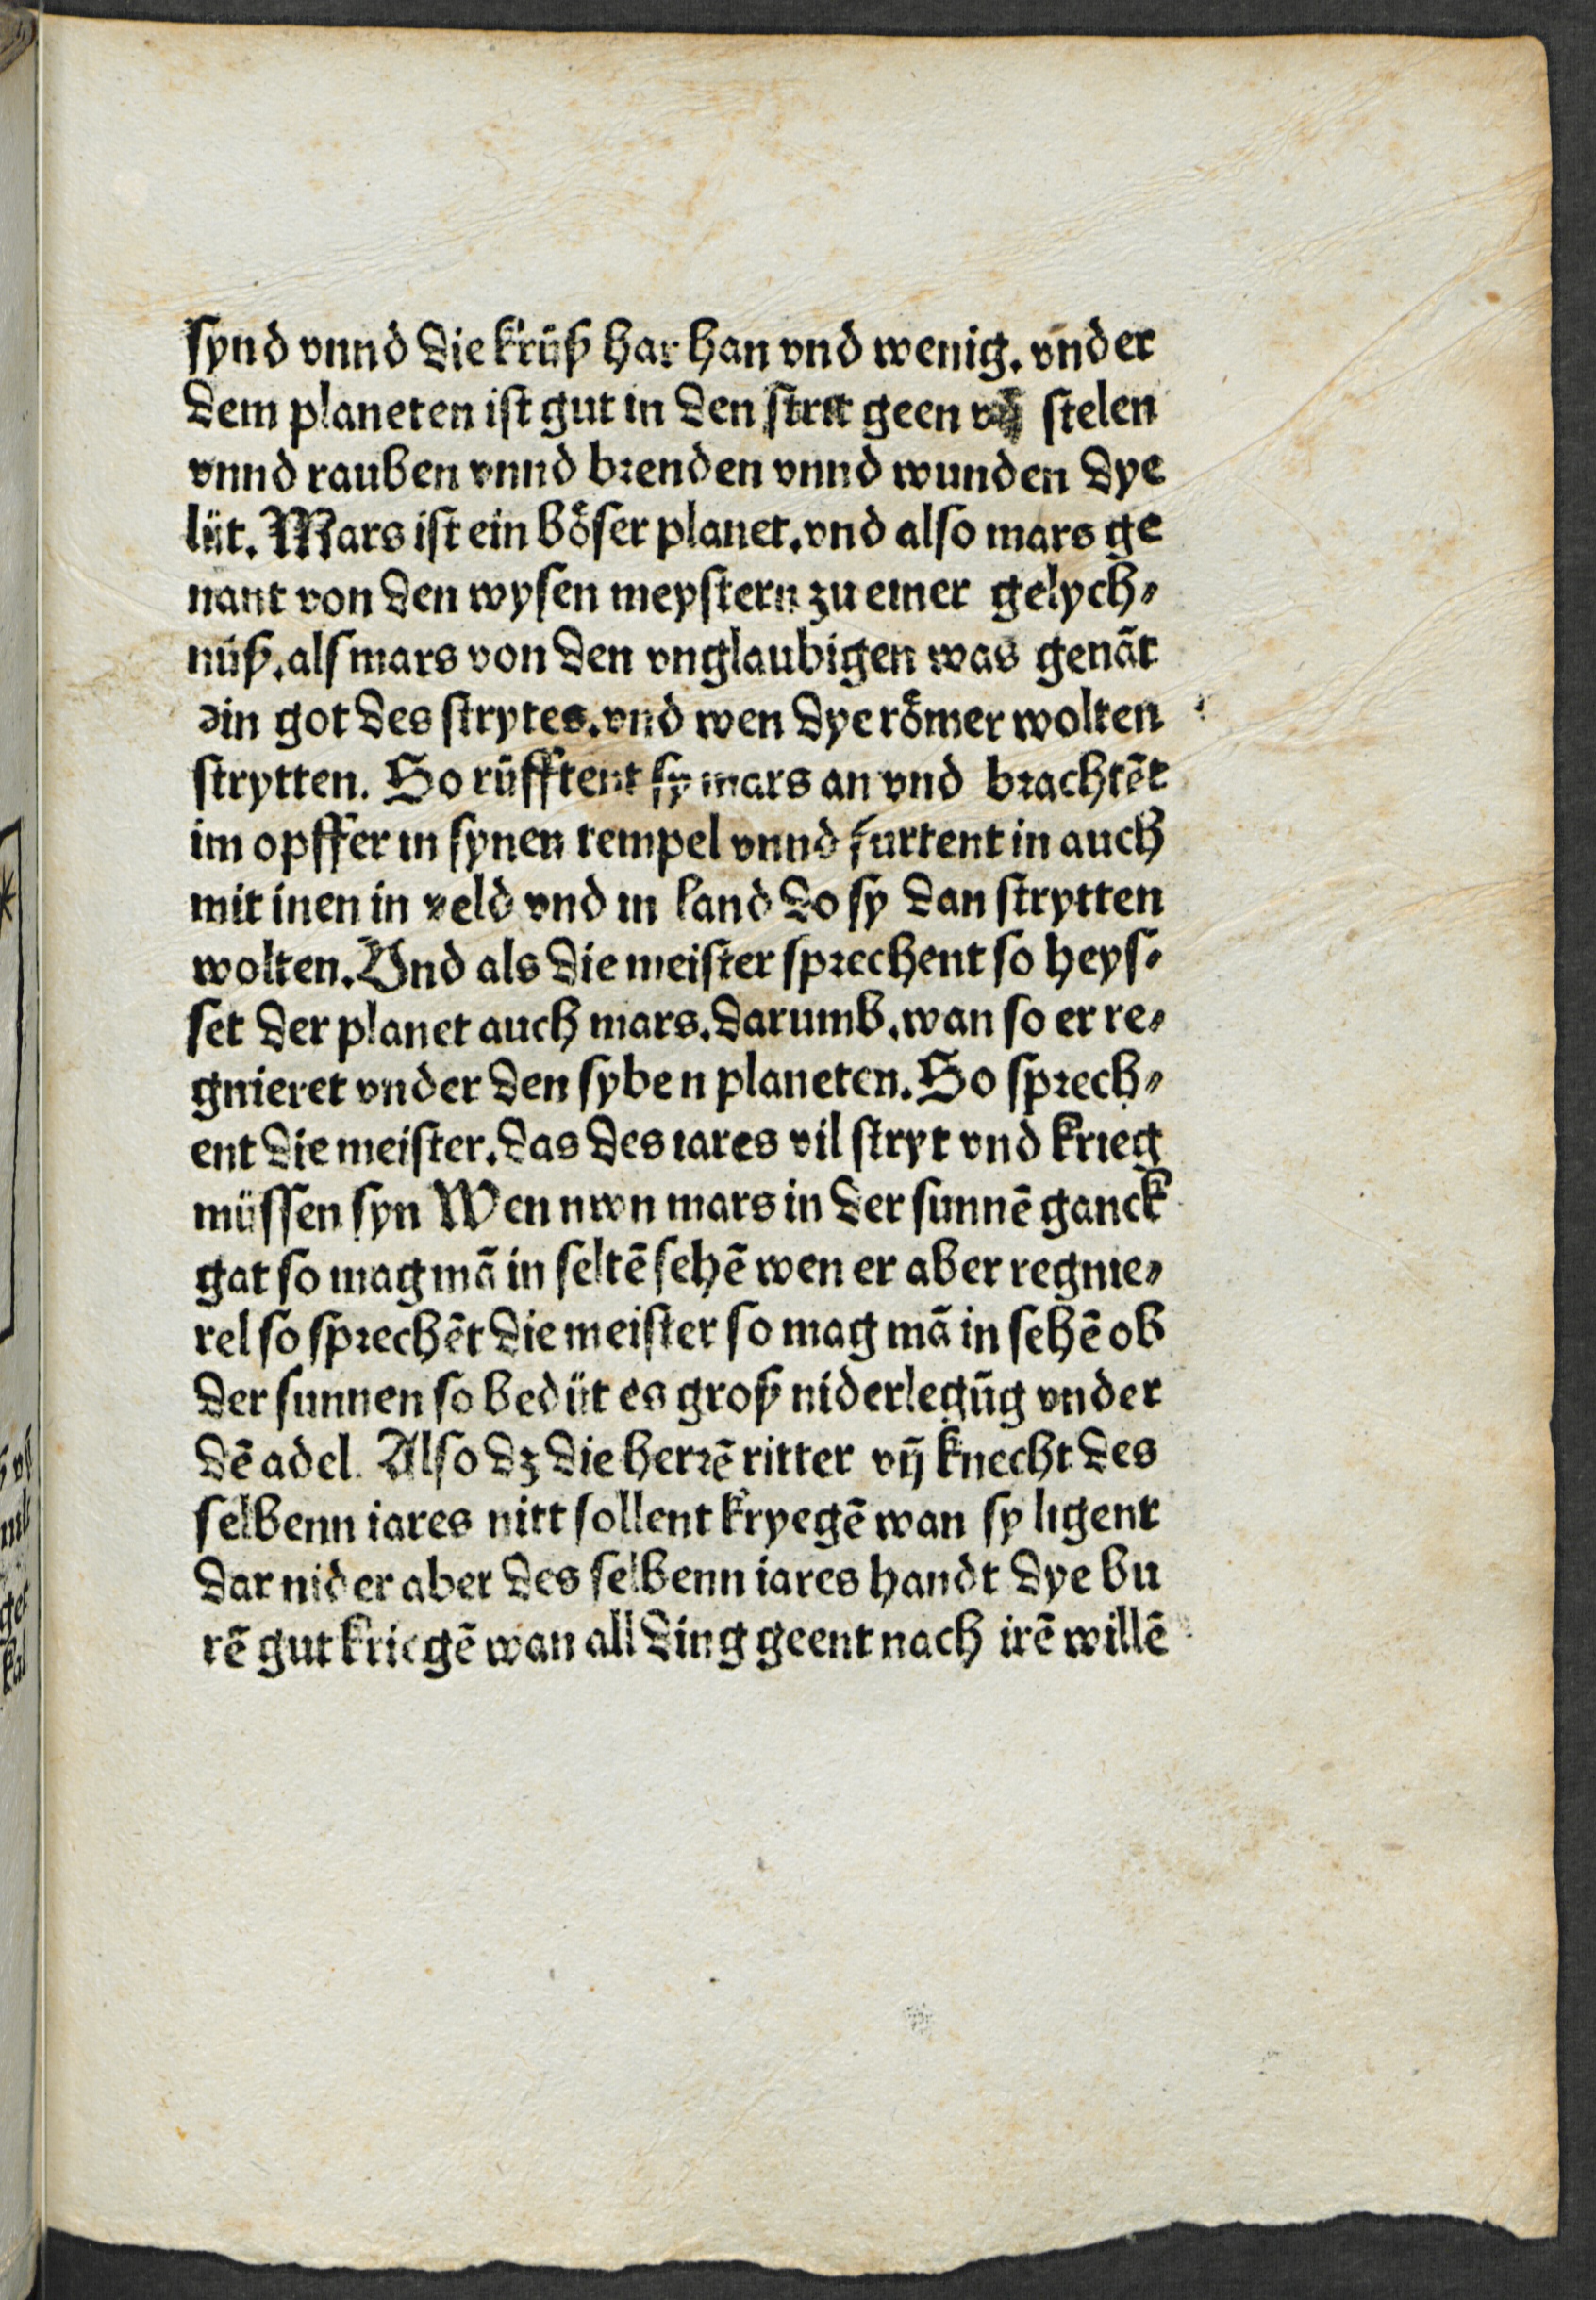 synd vnnd die krüß har han vnd wenig. vnder
dem planeten ist gut in den strit geen vn̄ stelen
vnnd rauben vnnd brenden vnnd wunden dye
lüt. Mars ist ein böser planet. vnd also mars ge
nant von den wysen meystern zu einer gelych⸗
nüß. als mars von den vnglaubigen was genāt
ein got des strytes. vnd wen dye römer wolten
strytten. So rüfftent sy mars an vnd brachtēt
im opffer in synen tempel vnnd furtent in auch
mit inen in veld vnd in land do sy dan strytten
wolten. Vnd als die meister sprechent so heys⸗
set der planet auch mars. darumb. wan so er re⸗
gnieret vnder den syben planeten. So sprech⸗
ent die meister. das des iares vil stryt vnd krieg
müssen syn Wen nwn mars in der sunnē ganck
gat so mag mā in seltē sehē wen er aber regnie⸗
rel so sprechēt die meister so mag mā in sehē ob
der sunnen so bedüt es groß niderlegūg vnder
dē adel. Also dz die herrē ritter vn̄ knecht des
selbenn iares nitt sollent kryegē wan sy ligent
dar nider aber des selbenn iares handt dye bu
rē gut kriegē wan all ding geent nach irē willē